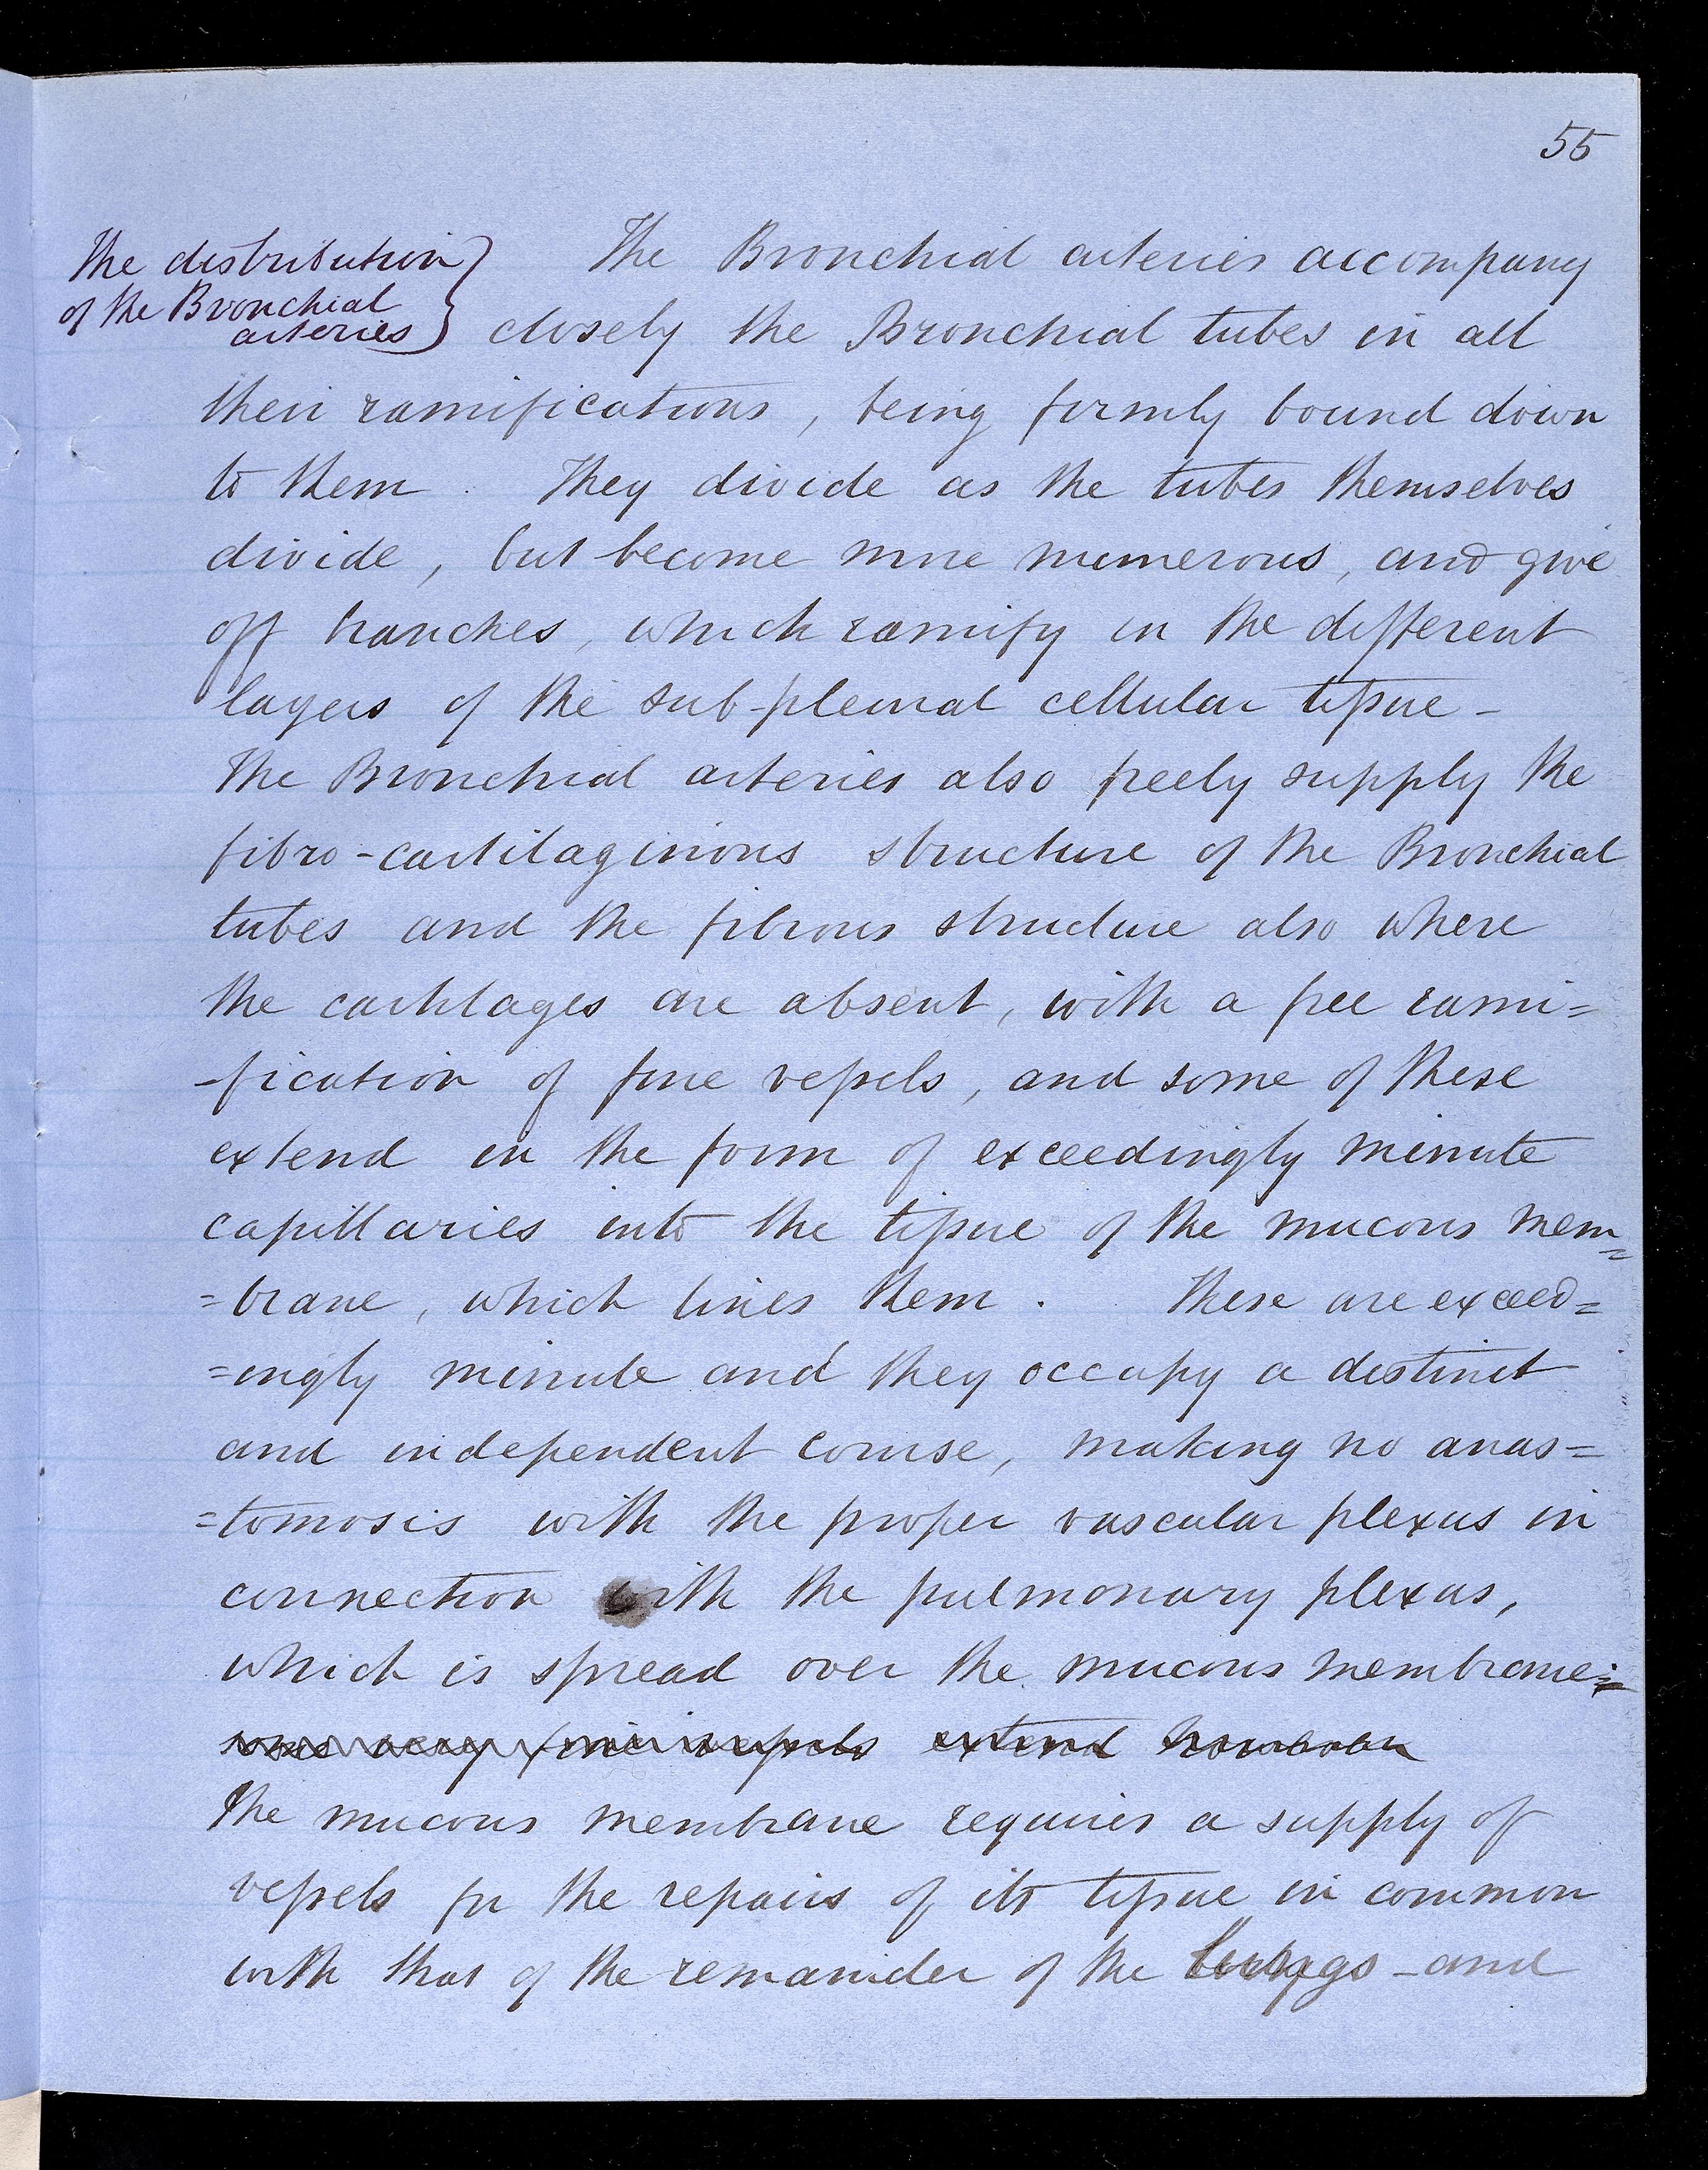 55
The distribution
of the Bronchial
arteries
The Bronchial arteries accompany
closely the Bronchial tubes in all
their ramifications, being firmly bound down
to them. They divide as the tubes themselves
divide, but become more numerous, and give
off branches, which ramify in the different
layers of the sub-pleural cellular tissue -
The Bronchial arteries also freely supply the
fibro-cartilaginous structure of the Bronchial
tubes and the fibrous structure also where
the cartilages are absent, with a free rami=
-fication of fine vessels, and some of these
extend in the form of exceedingly minute
capillaries into the tissue of the mucous mem=
=brane, which lines them. These are exceed=
=ingly minute and they occupy a distinct
and independent course, making no anas=
=tomosis with the proper vascular plexus in
connection with the pulmonary plexus,
which is spread over the mucous membrane
very fine vessels extend
The mucous membrane requires a supply of
vessels for the repairs of its tissue in common
with that of the remainder of the Lungs - and